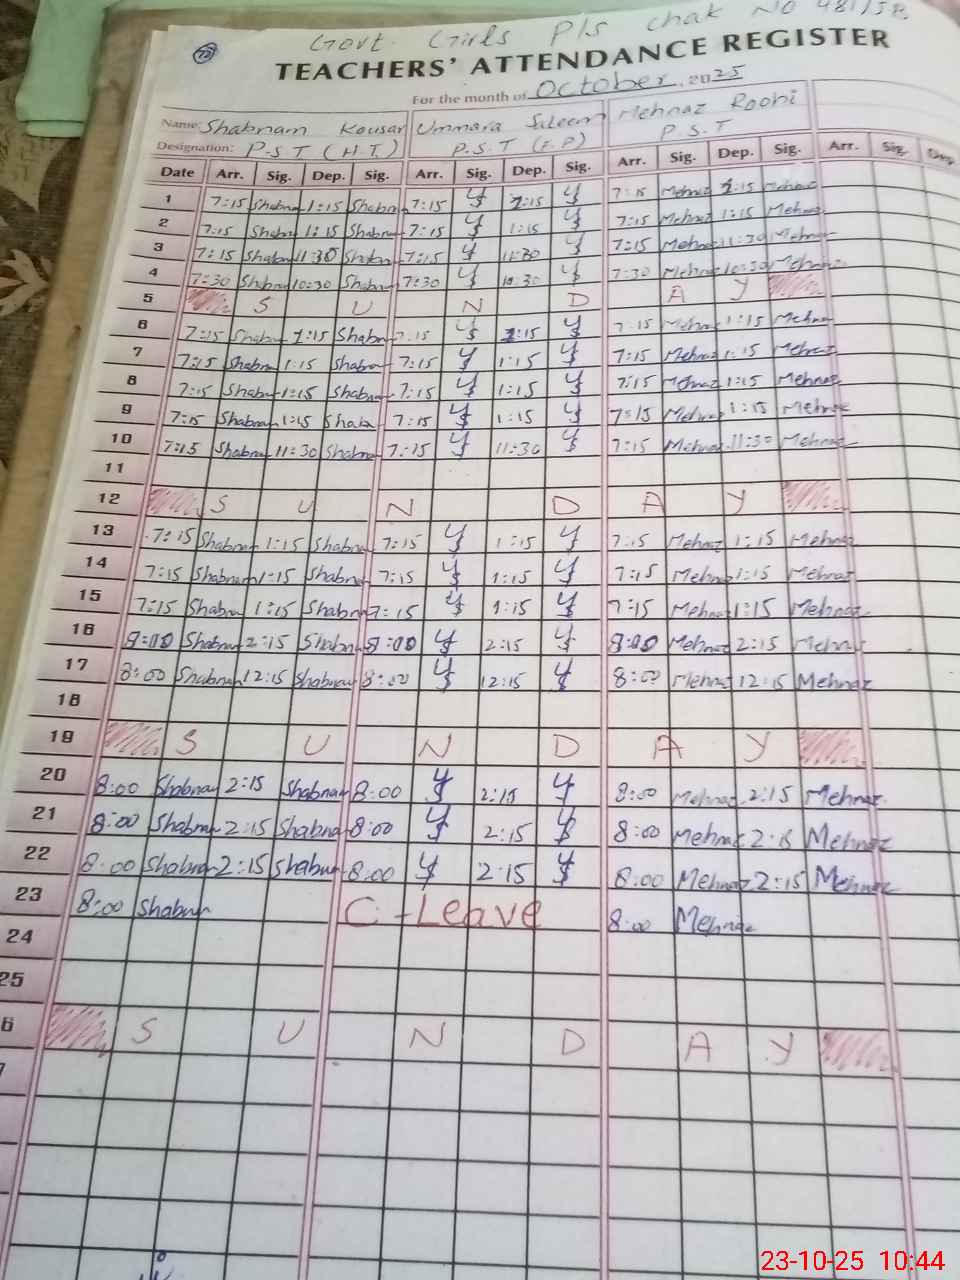 72
Govt. Girls P/S Chak No 481/JB
TEACHERS' ATTENDANCE REGISTER
For the month of October, 2025
Name: Shabnam Kousar Ummara Saleem Mehnaz Roohi
Designation: P.S.T (H.T.) P.S.T (E.P) P.S.T
Date Arr. Sig. Dep. Sig. Arr. Sig. Dep. Sig. Arr. Sig. Dep. Sig. Arr. Sig. Dep.
1 7:15 Shabnam 1:15 Shabnam 7:15 1:15 7:15 Mehnaz 1:15 Mehnaz
2 7:15 Shabnam 1:15 Shabnam 7:15 1:15 7:15 Mehnaz 1:15 Mehnaz
3 7:15 Shabnam 11:30 Shabnam 7:15 11:30 7:15 Mehnaz 11:30 Mehnaz
4 7:30 Shabnam 10:30 Shabnam 7:30 10:30 7:30 Mehnaz 10:30 Mehnaz
5 S U N D A Y
6 7:15 Shabnam 1:15 Shabnam 7:15 1:15 7:15 Mehnaz 1:15 Mehnaz
7 7:15 Shabnam 1:15 Shabnam 7:15 1:15 7:15 Mehnaz 1:15 Mehnaz
8 7:15 Shabnam 1:15 Shabnam 7:15 1:15 7:15 Mehnaz 1:15 Mehnaz
9 7:15 Shabnam 1:15 Shabnam 7:15 1:15 7:15 Mehnaz 1:15 Mehnaz
10 7:15 Shabnam 11:30 Shabnam 7:15 11:30 7:15 Mehnaz 11:30 Mehnaz
11
12 S U N D A Y
13 7:15 Shabnam 1:15 Shabnam 7:15 1:15 7:15 Mehnaz 1:15 Mehnaz
14 7:15 Shabnam 1:15 Shabnam 7:15 1:15 7:15 Mehnaz 1:15 Mehnaz
15 7:15 Shabnam 1:15 Shabnam 7:15 1:15 7:15 Mehnaz 1:15 Mehnaz
16 8:00 Shabnam 2:15 Shabnam 8:00 2:15 8:00 Mehnaz 2:15 Mehnaz
17 8:00 Shabnam 12:15 Shabnam 8:00 12:15 8:00 Mehnaz 12:15 Mehnaz
18
19 S U N D A Y
20 8:00 Shabnam 2:15 Shabnam 8:00 2:15 8:00 Mehnaz 2:15 Mehnaz
21 8:00 Shabnam 2:15 Shabnam 8:00 2:15 8:00 Mehnaz 2:15 Mehnaz
22 8:00 Shabnam 2:15 Shabnam 8:00 2:15 8:00 Mehnaz 2:15 Mehnaz
23 8:00 Shabnam C-Leave 8:00 Mehnaz
24
25
6 S U N D A Y
7
23-10-25 10:44